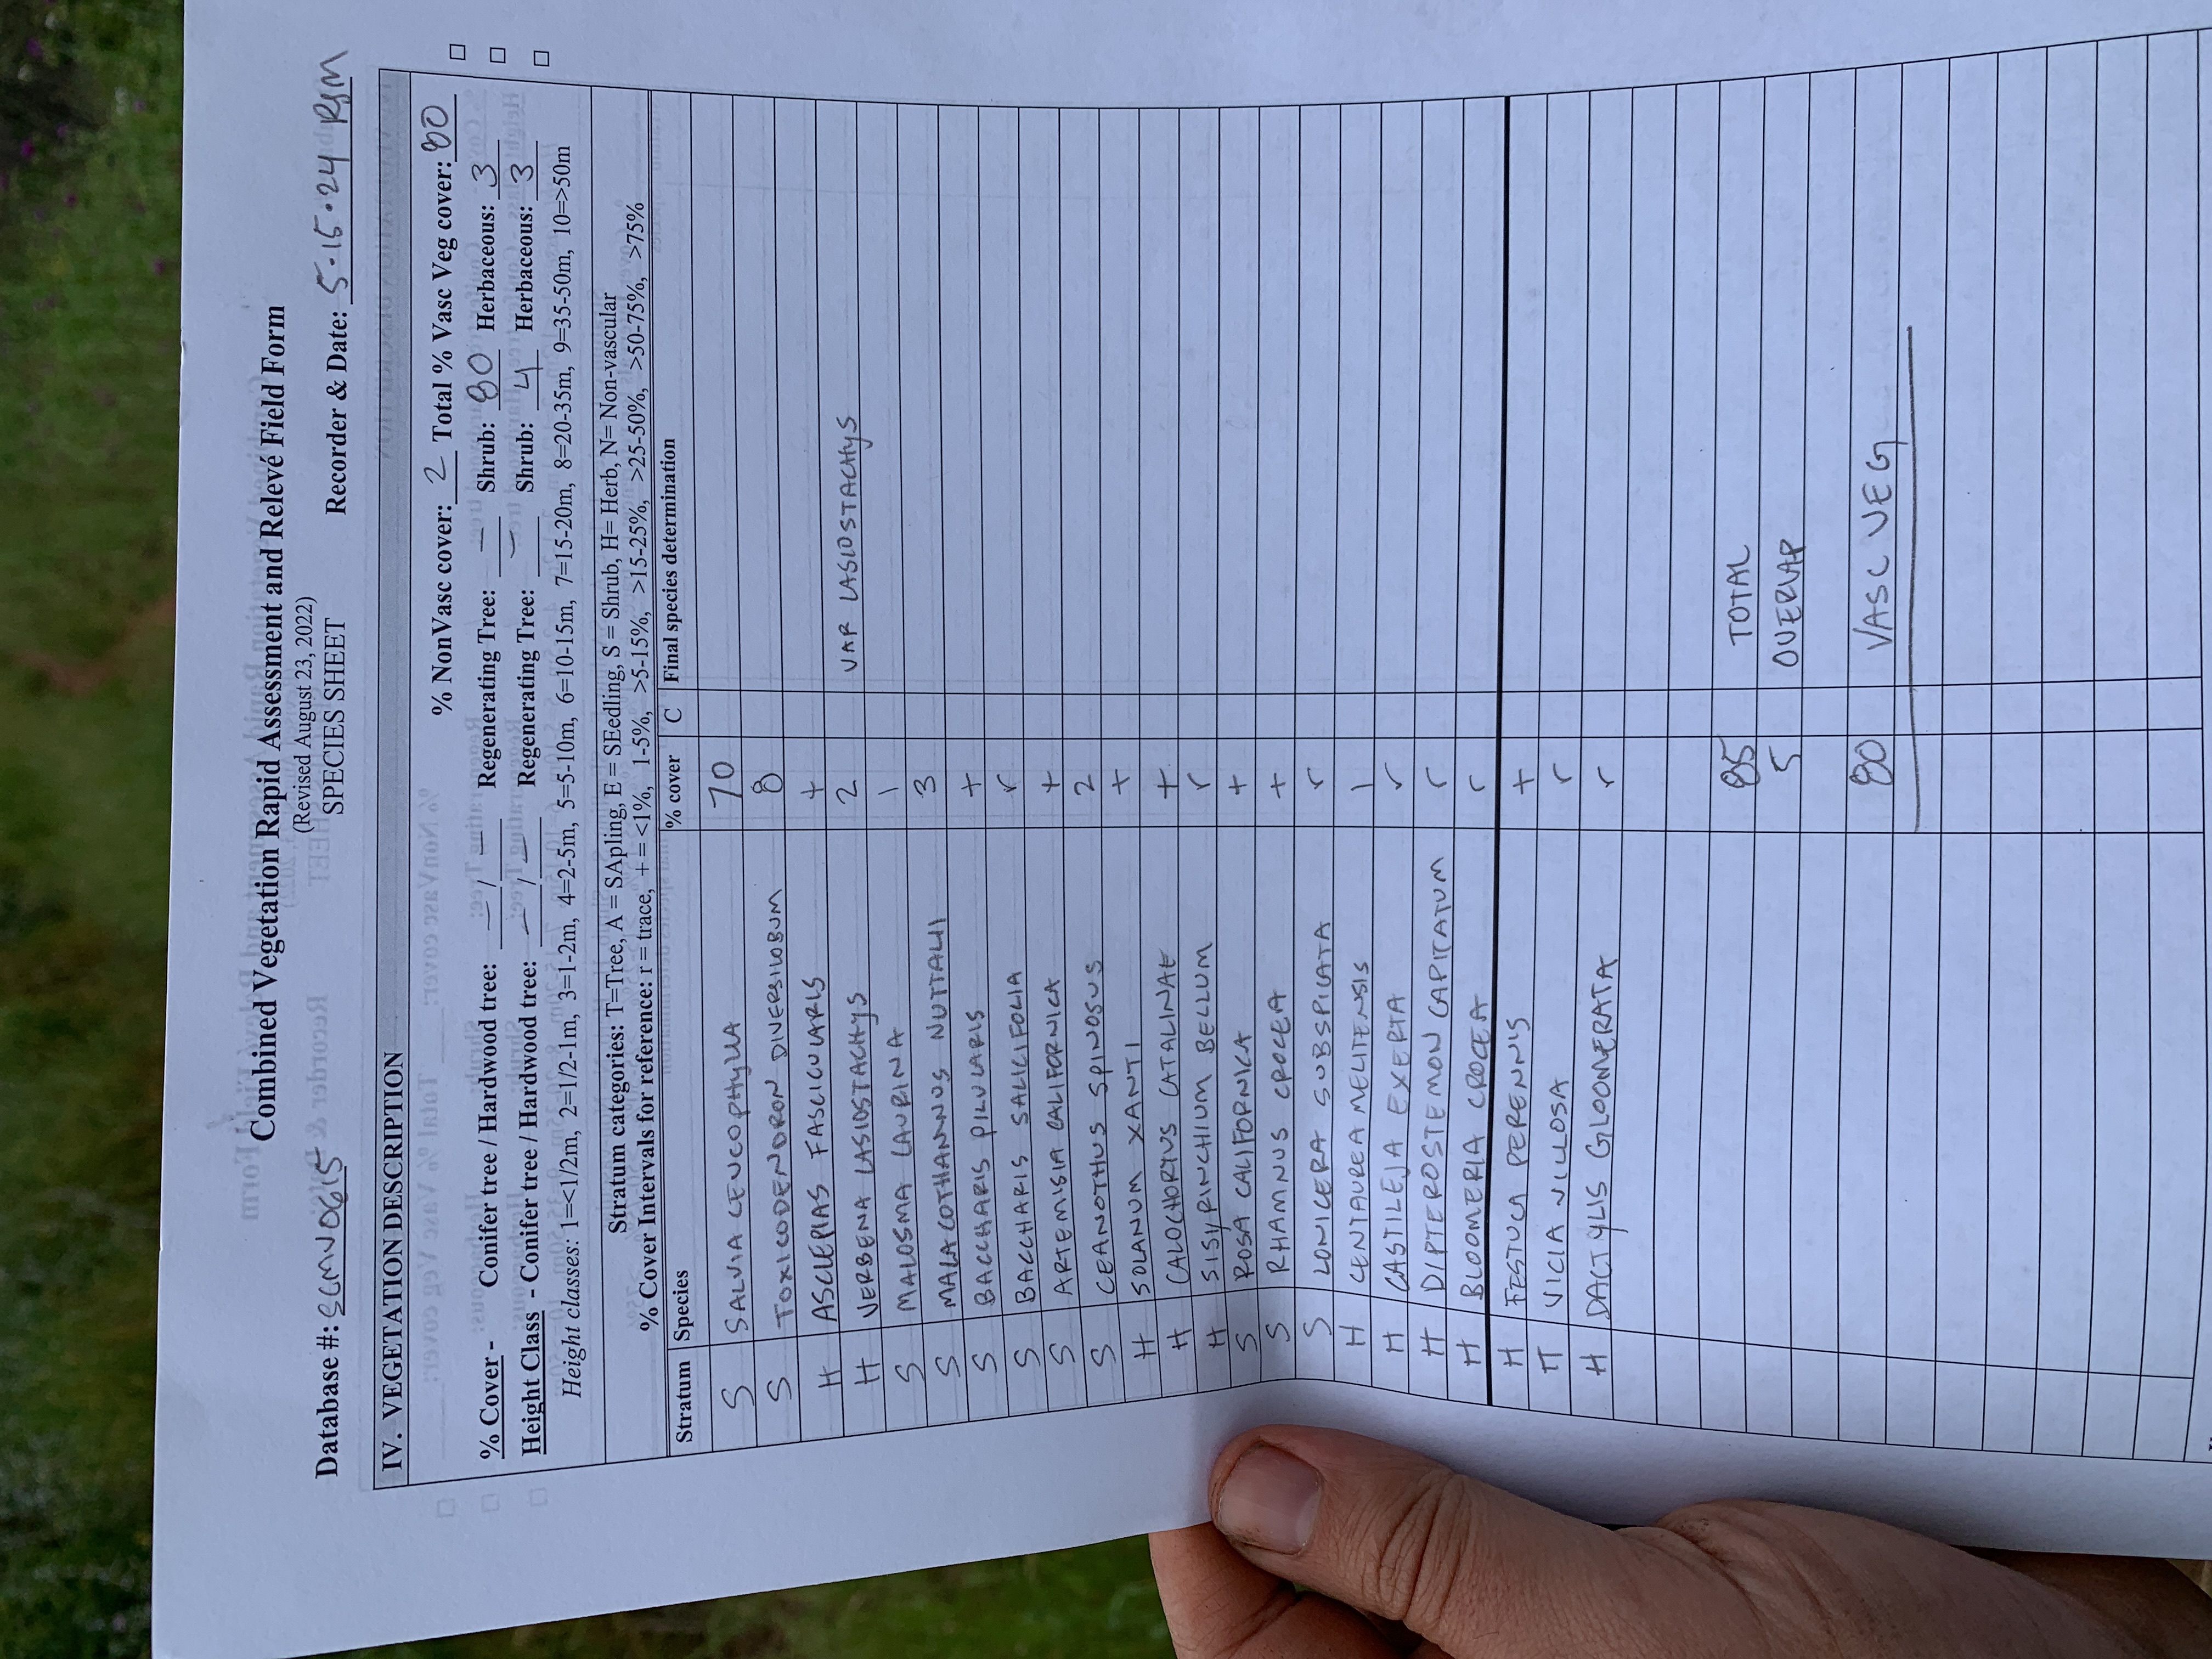 Combined Vegetation Rapid Assessment and Relevé Field Form
(Revised August 23, 2022)
SPECIES SHEET
Database #: SCMV0615 Recorder & Date: 5.15.24 RJM
IV. VEGETATION DESCRIPTION
% NonVasc cover: 2 Total % Vasc Veg cover: 80
% Cover - Conifer tree / Hardwood tree: — / — Regenerating Tree: — Shrub: 80 Herbaceous: 3
Height Class - Conifer tree / Hardwood tree: — / — Regenerating Tree: — Shrub: 4 Herbaceous: 3
Height classes: 1=<1/2m, 2=1/2-1m, 3=1-2m, 4=2-5m, 5=5-10m, 6=10-15m, 7=15-20m, 8=20-35m, 9=35-50m, 10=>50m
Stratum categories: T=Tree, A = SApling, E = SEedling, S = Shrub, H= Herb, N= Non-vascular
% Cover Intervals for reference: r = trace, + = <1%, 1-5%, >5-15%, >15-25%, >25-50%, >50-75%, >75%
Stratum Species % cover C Final species determination
S SALVIA LEUCOPHYLLA 70
S TOXICODENDRON DIVERSILOBUM 8
H ASCLEPIAS FASCICULARIS +
H VERBENA LASIOSTACHYS 2 VAR LASIOSTACHYS
S MALOSMA LAURINA 1
S MALACOTHAMNUS NUTTALII 3
S BACCHARIS PILULARIS +
S BACCHARIS SALICIFOLIA r
S ARTEMISIA CALIFORNICA +
S CEANOTHUS SPINOSUS 2
H SOLANUM XANTI +
H CALOCHORTUS CATALINAE +
H SISYRINCHIUM BELLUM r
S ROSA CALIFORNICA +
S RHAMNUS CROCEA +
S LONICERA SUBSPICATA r
H CENTAUREA MELITENSIS 1
H CASTILEJA EXERTA r
H DIPTEROSTEMON CAPITATUM r
H BLOOMERIA CROCEA r
H FESTUCA PERENNIS +
H VICIA VILLOSA r
H DACTYLIS GLOOMERATA r
85 TOTAL
5 OVERLAP
80 VASC VEG